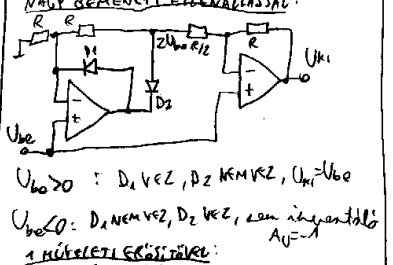 NAGY BEMENETI ELLENÁLLÁSSAL:
R R 2Ube R/2 R
D1
D2
Uki
Ube
Ube>0 : D1 VEZ, D2 NEM VEZ, Uki=Ube
Ube<0: D1 NEM VEZ, D2 VEZ, nem invertáló
AU=-1
1 MŰVELETI ERŐSÍTŐVEL: